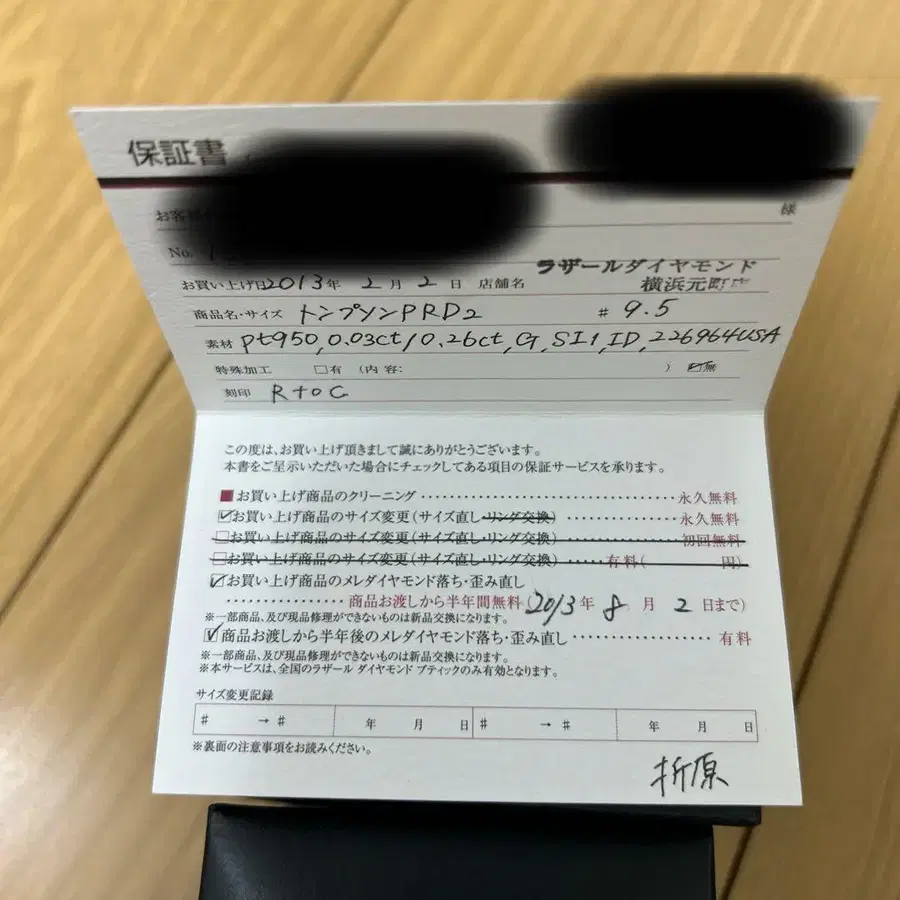 保証書
お客様
様
No.
お買い上げ日2013年 2月 2日 店舗名 ラザールダイヤモンド
横浜元町店
商品名・サイズ トンプソンPRD2 # 9.5
素材 Pt950, 0.03ct/0.26ct, G, SI1, ID, 226964USA
特殊加工 □有 (内容: ) ☑無
刻印 R to C
この度は、お買い上げ頂きまして誠にありがとうございます。
本書をご呈示いただいた場合にチェックしてある項目の保証サービスを承ります。
■お買い上げ商品のクリーニング・・・・・・・・・・・・・・・・・・・・・・・・永久無料
☑お買い上げ商品のサイズ変更(サイズ直し・リング交換)・・・・・・・・・・永久無料
□お買い上げ商品のサイズ変更(サイズ直し・リング交換)・・・・・・・・・・初回無料
□お買い上げ商品のサイズ変更(サイズ直し・リング交換)・・・・・有料( 円)
☑お買い上げ商品のメレダイヤモンド落ち・歪み直し
・・・・・・・・・・商品お渡しから半年間無料(2013年 8月 2日まで)
※一部商品、及び現品修理ができないものは新品交換になります。
☑商品お渡しから半年後のメレダイヤモンド落ち・歪み直し・・・・・・・・・・・・有料
※一部商品、及び現品修理ができないものは新品交換になります。
※本サービスは、全国のラザール ダイヤモンド ブティックのみ有効となります。
サイズ変更記録
# → # 年 月 日 # → # 年 月 日
※裏面の注意事項をお読みください。
折原